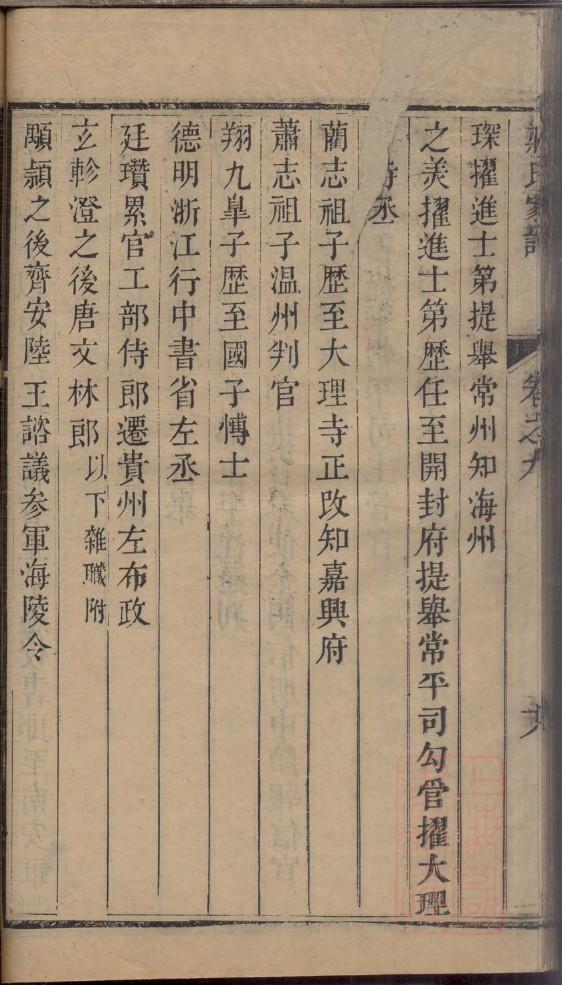 氏家譜
卷之九
琛擢進士第提舉常州知海州
之美擢進士第歷任至開封府提舉常平司勾管擢大理
寺丞
藺志祖子歷至大理寺正改知嘉興府
蕭志祖子温州判官
翔九臯子歷至國子愽士
德明浙江行中書省左丞
廷瓚累官工部侍郎遷貴州左布政
玄軫澄之後唐文林郎以下雜職附
顒頴之後齊安陸王諮議参軍海陵令